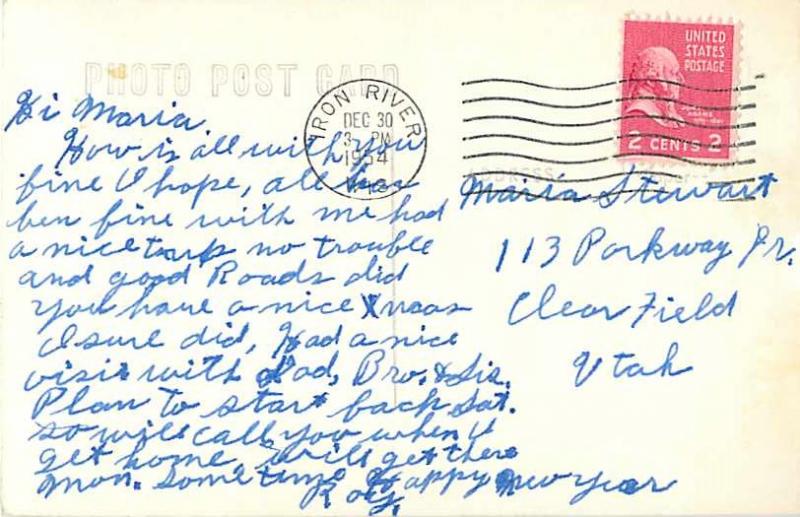 PHOTO POST CARD
UNITED
STATES
POSTAGE
2 CENTS 2
IRON RIVER
DEC 30
3 PM
1954
Hi Maria
How is all with you
fine I hope, all has
ben fine with me had
a nice trip no trouble
and good Roads did
you have a nice Xmas
I sure did, Had a nice
visit with Dad, Bro. & Sis.
Plan to start back Sat.
so will call you when I
get home, will get there
Mon. sometime Happy New Year
Roy.
ADDRESS
Maria Stewart
113 Parkway Dr.
Clear Field
Utah